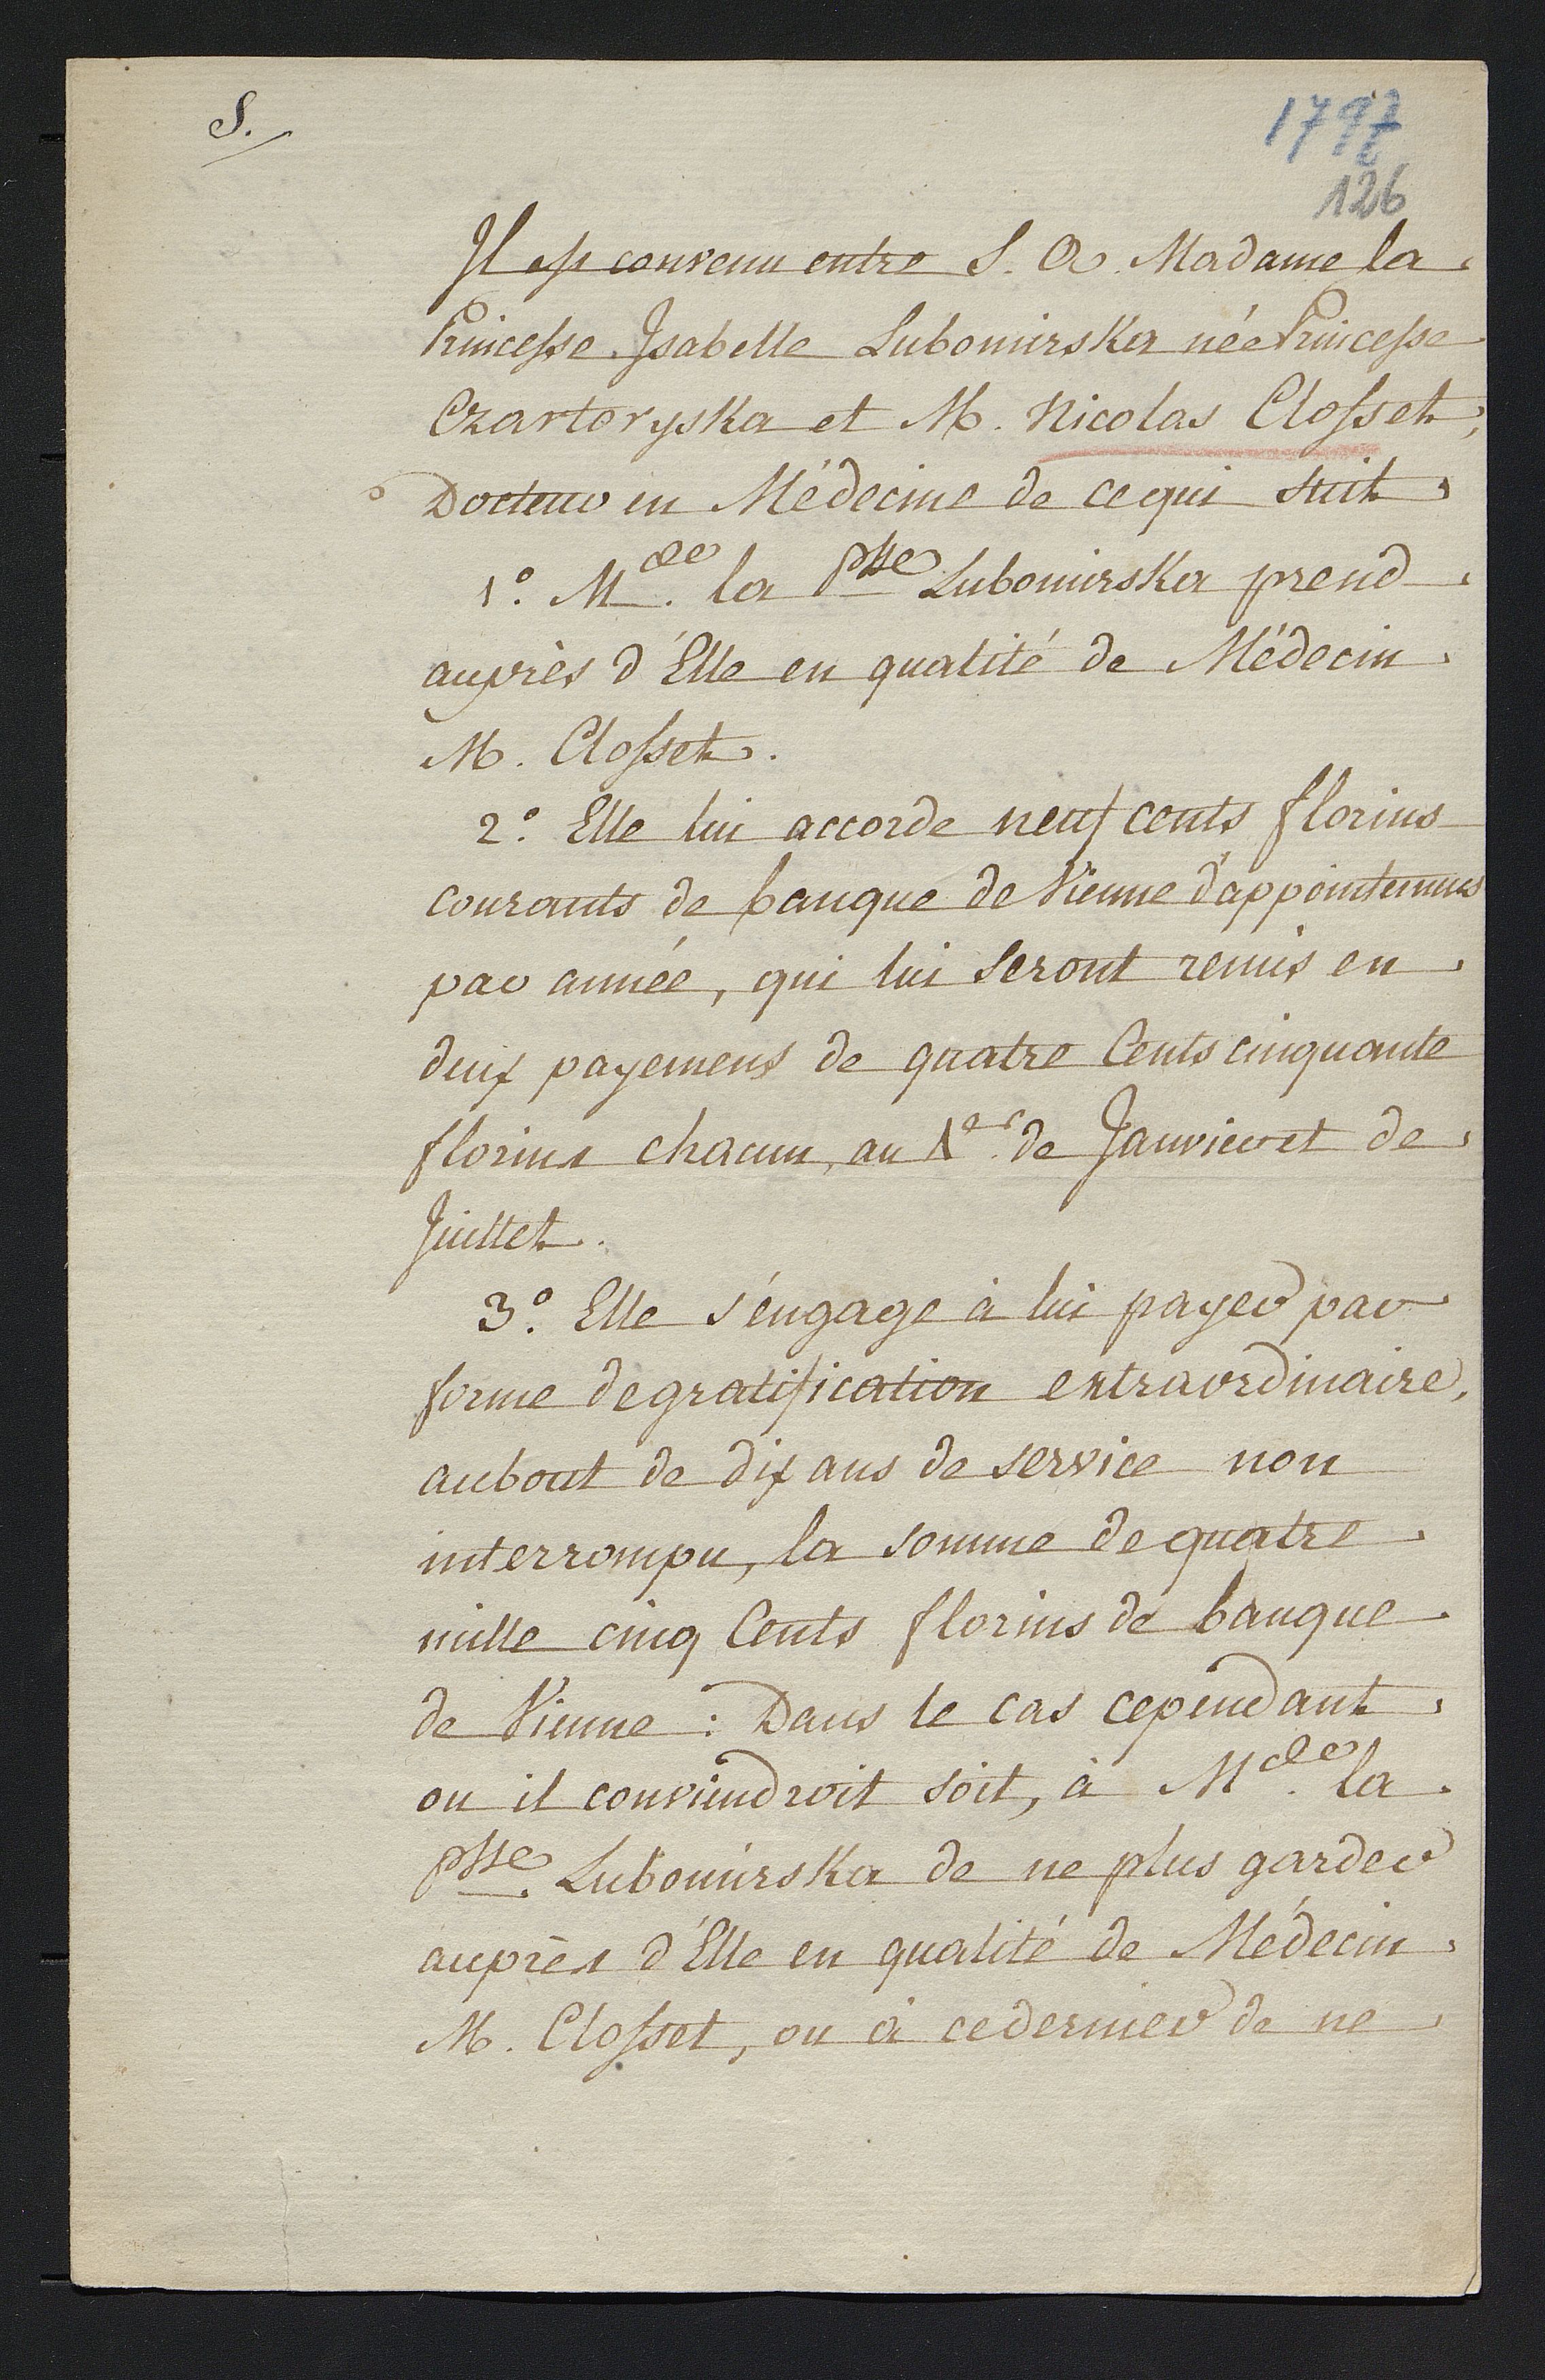 S.
1797
126
Il est convenu entre S. A. Madame la
Princesse Isabelle Lubomirska née Princesse
Czartoryska et M. Nicolas Closset,
Docteur en Médecine de ce qui suit
1.° M.de la P.sse Lubomirska prend
auprès d'Elle en qualité de Médecin
M. Closset.
2.° Elle lui accorde neuf cents florins
courants de banque de Vienne d'appointemens
par année, qui lui seront remis en
deux payemens de quatre Cents cinquante
florins chacun, au 1.er de Janvier et de
Juillet.
3.° Elle s'éngage à lui payer par
forme de gratification extraordinaire,
au bout de dix ans de service non
interrompu, la somme de quatre
mille cinq Cents florins de banque
de Vienne : Dans le cas cependant
ou il conviendroit soit, à M.de la
P.sse Lubomirska de ne plus garder
auprès d'Elle en qualité de Médecin
M. Closset, ou à ce dernier de ne